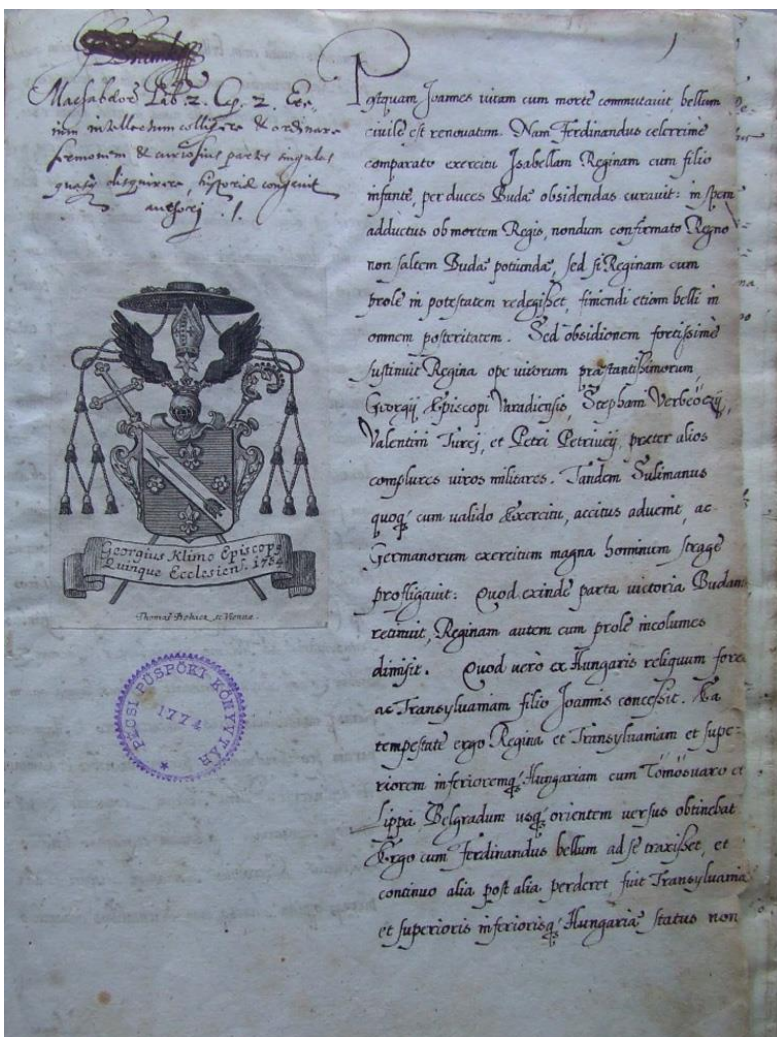 Machabeor Lib. 2. Cp. 2. Ete-
nim intellectum colligere & ordinare
sermonem & curiosius partes singulas
quasq disquirere, historiæ congruit
authori .1.
Georgius Klimo Episcops
Quinque Ecclesiens. 1754
sc. Viennæ.
PÉCSI PÜSPÖKI KÖNYVTÁR
1774
Postquam Joannes uitam cum morte commutauit, bellum
ciuile est renouatum. Nam Ferdinandus celerrime
comparato exercitu Isabellam Reginam cum filio
infante, per duces Budæ obsidendas curauit: in spem
adductus ob mortem Regis, nondum confirmato Regno
non saltem Budæ potiundæ, sed si Reginam cum
prole in potestatem redegisset, finiendi etiam belli in
omnem posteritatem. Sed obsidionem fortissime
sustinuit Regina ope uirorum præstantissimorum,
Georgij Episcopi Varadiensis, Stephani Verbeöczij,
Valentini Turcj, et Petri Petriucij, præter alios
complures uiros militares. Tandem Sulimanus
quoq́ cum ualido Exercitu, accitus aduenit, ac
Germanorum exercitum magna hominum strage
profligauit: Quod exinde parta uictoria Budam
retinuit, Reginam autem cum prole incolumes
dimisit. Quod uerò ex Hungaris reliquum foret
ac Transyluaniam filio Joannis concessit. Ea
tempestate ergo Regina et Transyluaniam et supe-
riorem inferioremq́ Hungariam cum Tömösuaro et
Lippa, Belgradum usq́ orientem uersus obtinebat
Ergo cum Ferdinandus bellum ad se traxisset, et
continuo alia post alia perderet, fuit Transyluaniæ
et superioris inferiorisq́ Hungariæ status non